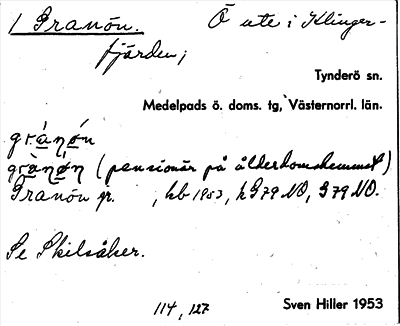 1 Granön. Ö ute i Klinger-
fjärden;
Tynderö sn.
Medelpads ö. doms. tg, Västernorrl. län.
grànǿn
grànǿn (pensionär på ålderdomshemmet)
Granön gr. , hb 1953, kG79 NO, G79 NO.
Se Skilsåker.
114, 127
Sven Hiller 1953